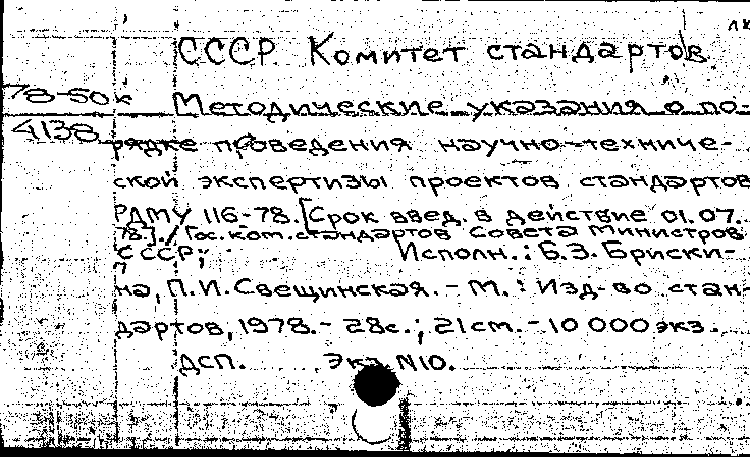 СССР. Комитет стандартов.
78-50к Методические указания о по-
4138 рядке проведения научно-техниче-
ской экспертизы проектов стандартов
РДМУ 116-78. [Срок введ. в действие 01.07.
78]./ Гос. ком. стандартов Совета Министров
СССР; Исполн.: Б.З. Бриски-
на, П.И. Свещинская. - М.: Изд-во стан-
дартов, 1978. - 28с.; 21см. - 10 000 экз.
ДСП. Экз. N10.